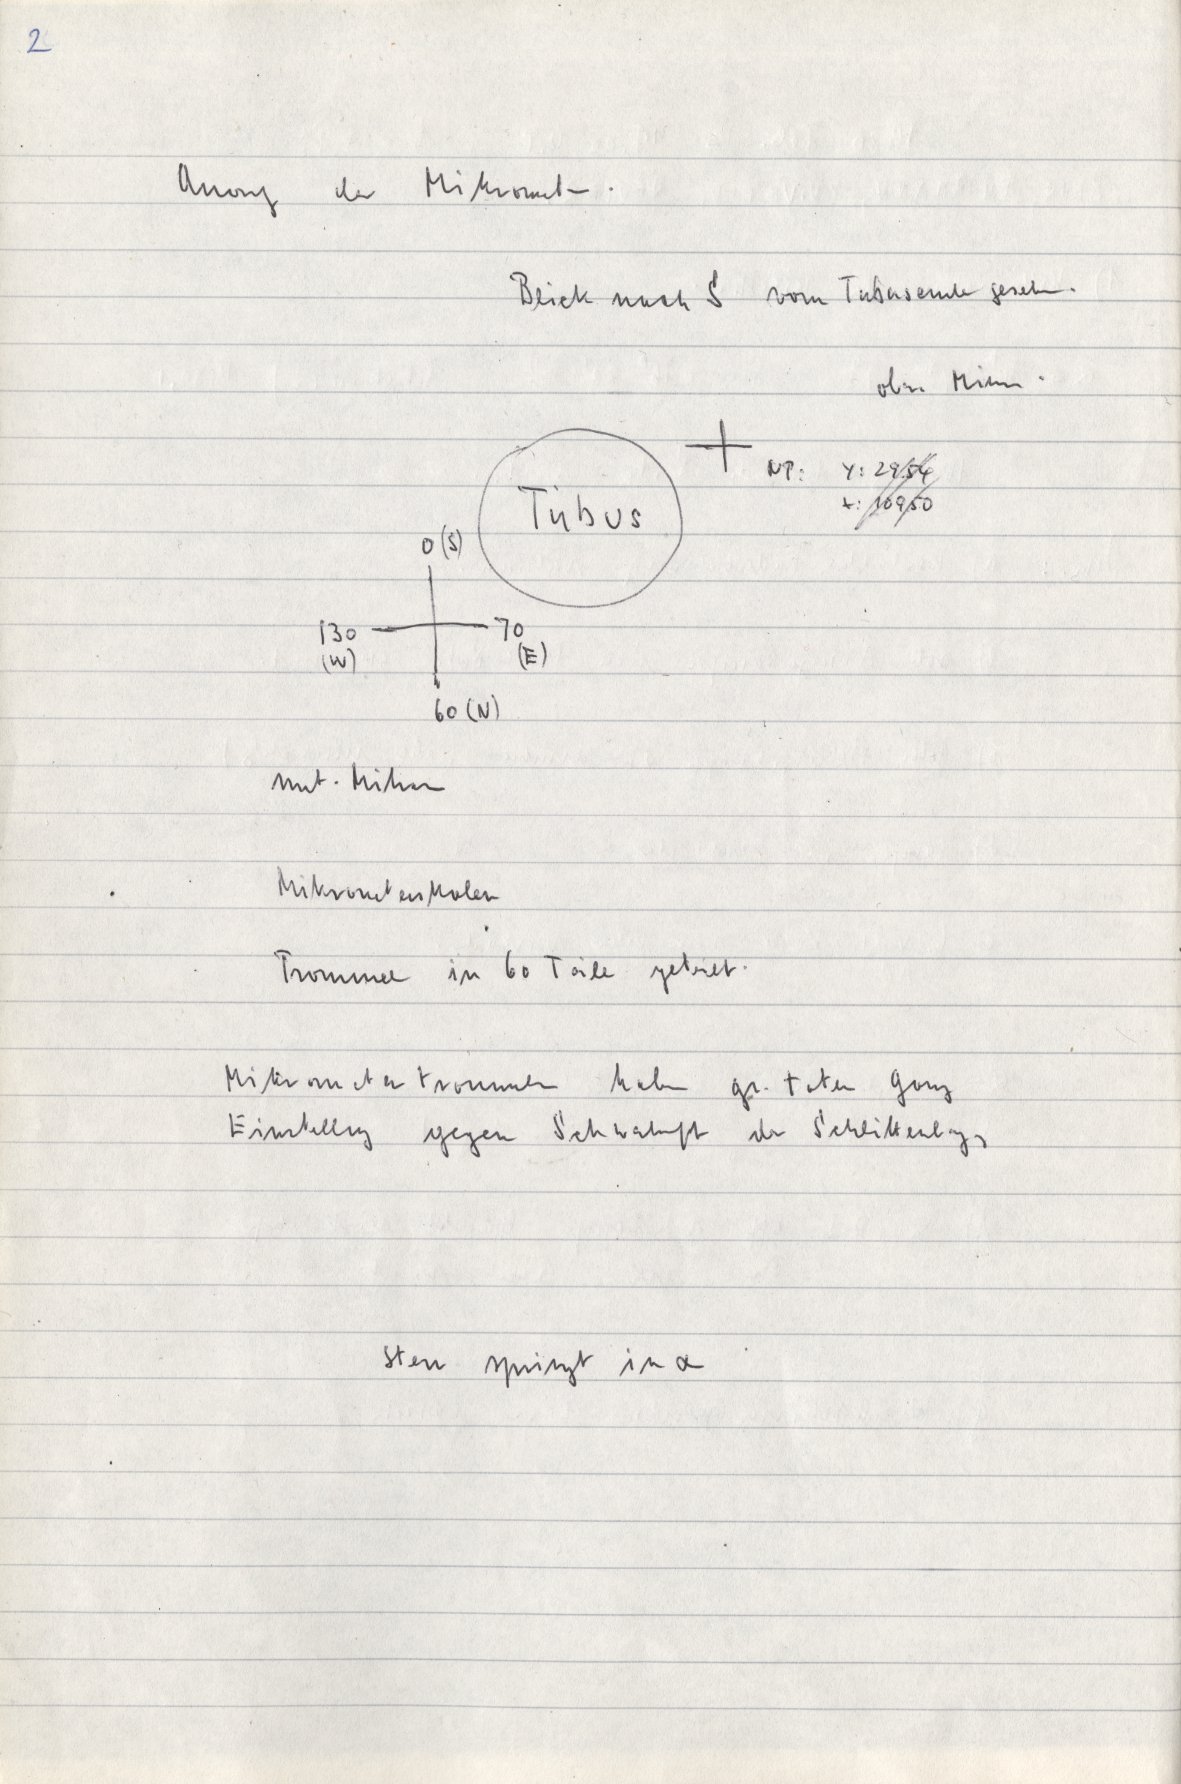 2
der Mikromet.
Blick nach S vom Tubusende gesehen.
oben Mikrm.
NP: Y: 2954
x: 10950
Tubus
0 (S)
130 70
(W) (E)
60 (N)
unt. Mikrm
Mikrometerskalen
Trommel in 60 Teile geteilt.
Mikrometertrommeln haben toten Gang
Einstellung gegen der
Stern springt in α